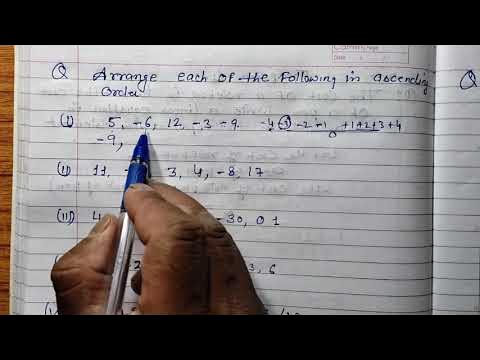 Q Arrange each of the following in ascending
order
(I) 5, -6, 12, -3 -9 -4 -3 -2 -1 0 +1 +2 +3 +4
-9,
(II) 11, 3, 4, -8, 17
(III) 4 -30, 0 1
3, 6
Q